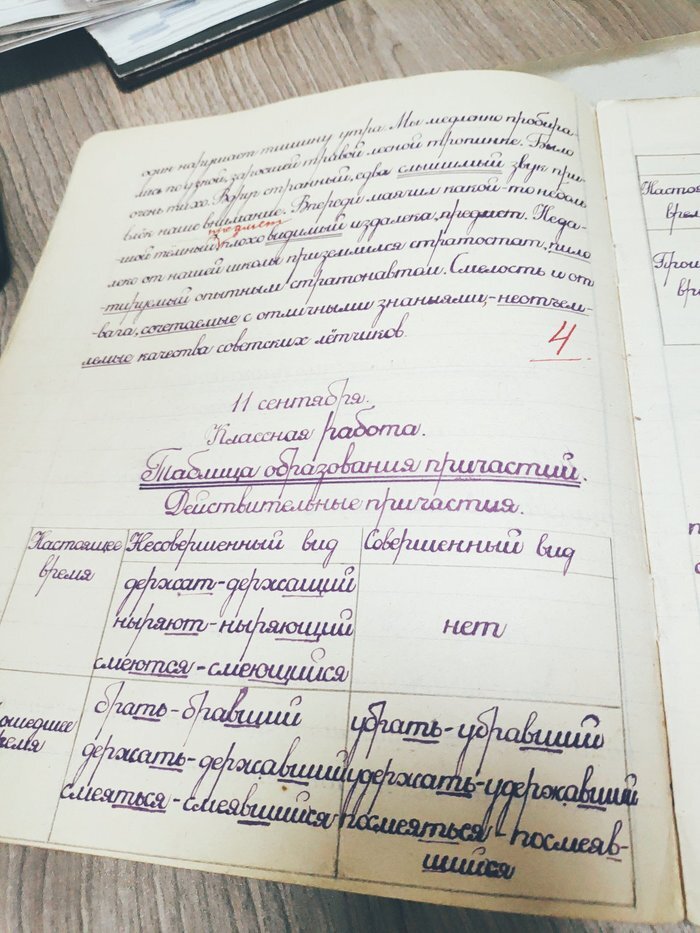 один нарушает тишину утра. Мы медленно пробира-
лись по узкой, заросшей травой лесной тропинке. Было
очень тихо. Вдруг странный, едва слышимый звук при-
влёк наше внимание. Впереди маячил какой-то неболь
предмет
-шой тёмный, плохо видимый издалека, предмет. Неда-
леко от нашей школы приземлился стратостат, пило
-тируемый опытным стратонавтом. Смелость и от
-вага, сочетаемые с отличными знаниями, - неотъем-
лемые качества советских лётчиков.
4
11 сентября.
Классная работа.
Таблица образования причастий.
Действительные причастия.
Настоящее время
Несовершенный вид
Совершенный вид
держат-держащий
ныряют-ныряющий
смеются-смеющийся
нет
ошедшее
ремя
брать-бравший
держать-державший
смеяться-смеявшийся
убрать-убравший
удержать-удержавший
посмеяться-посмеяв-
шийся
Настоя
врем
Прош
вре